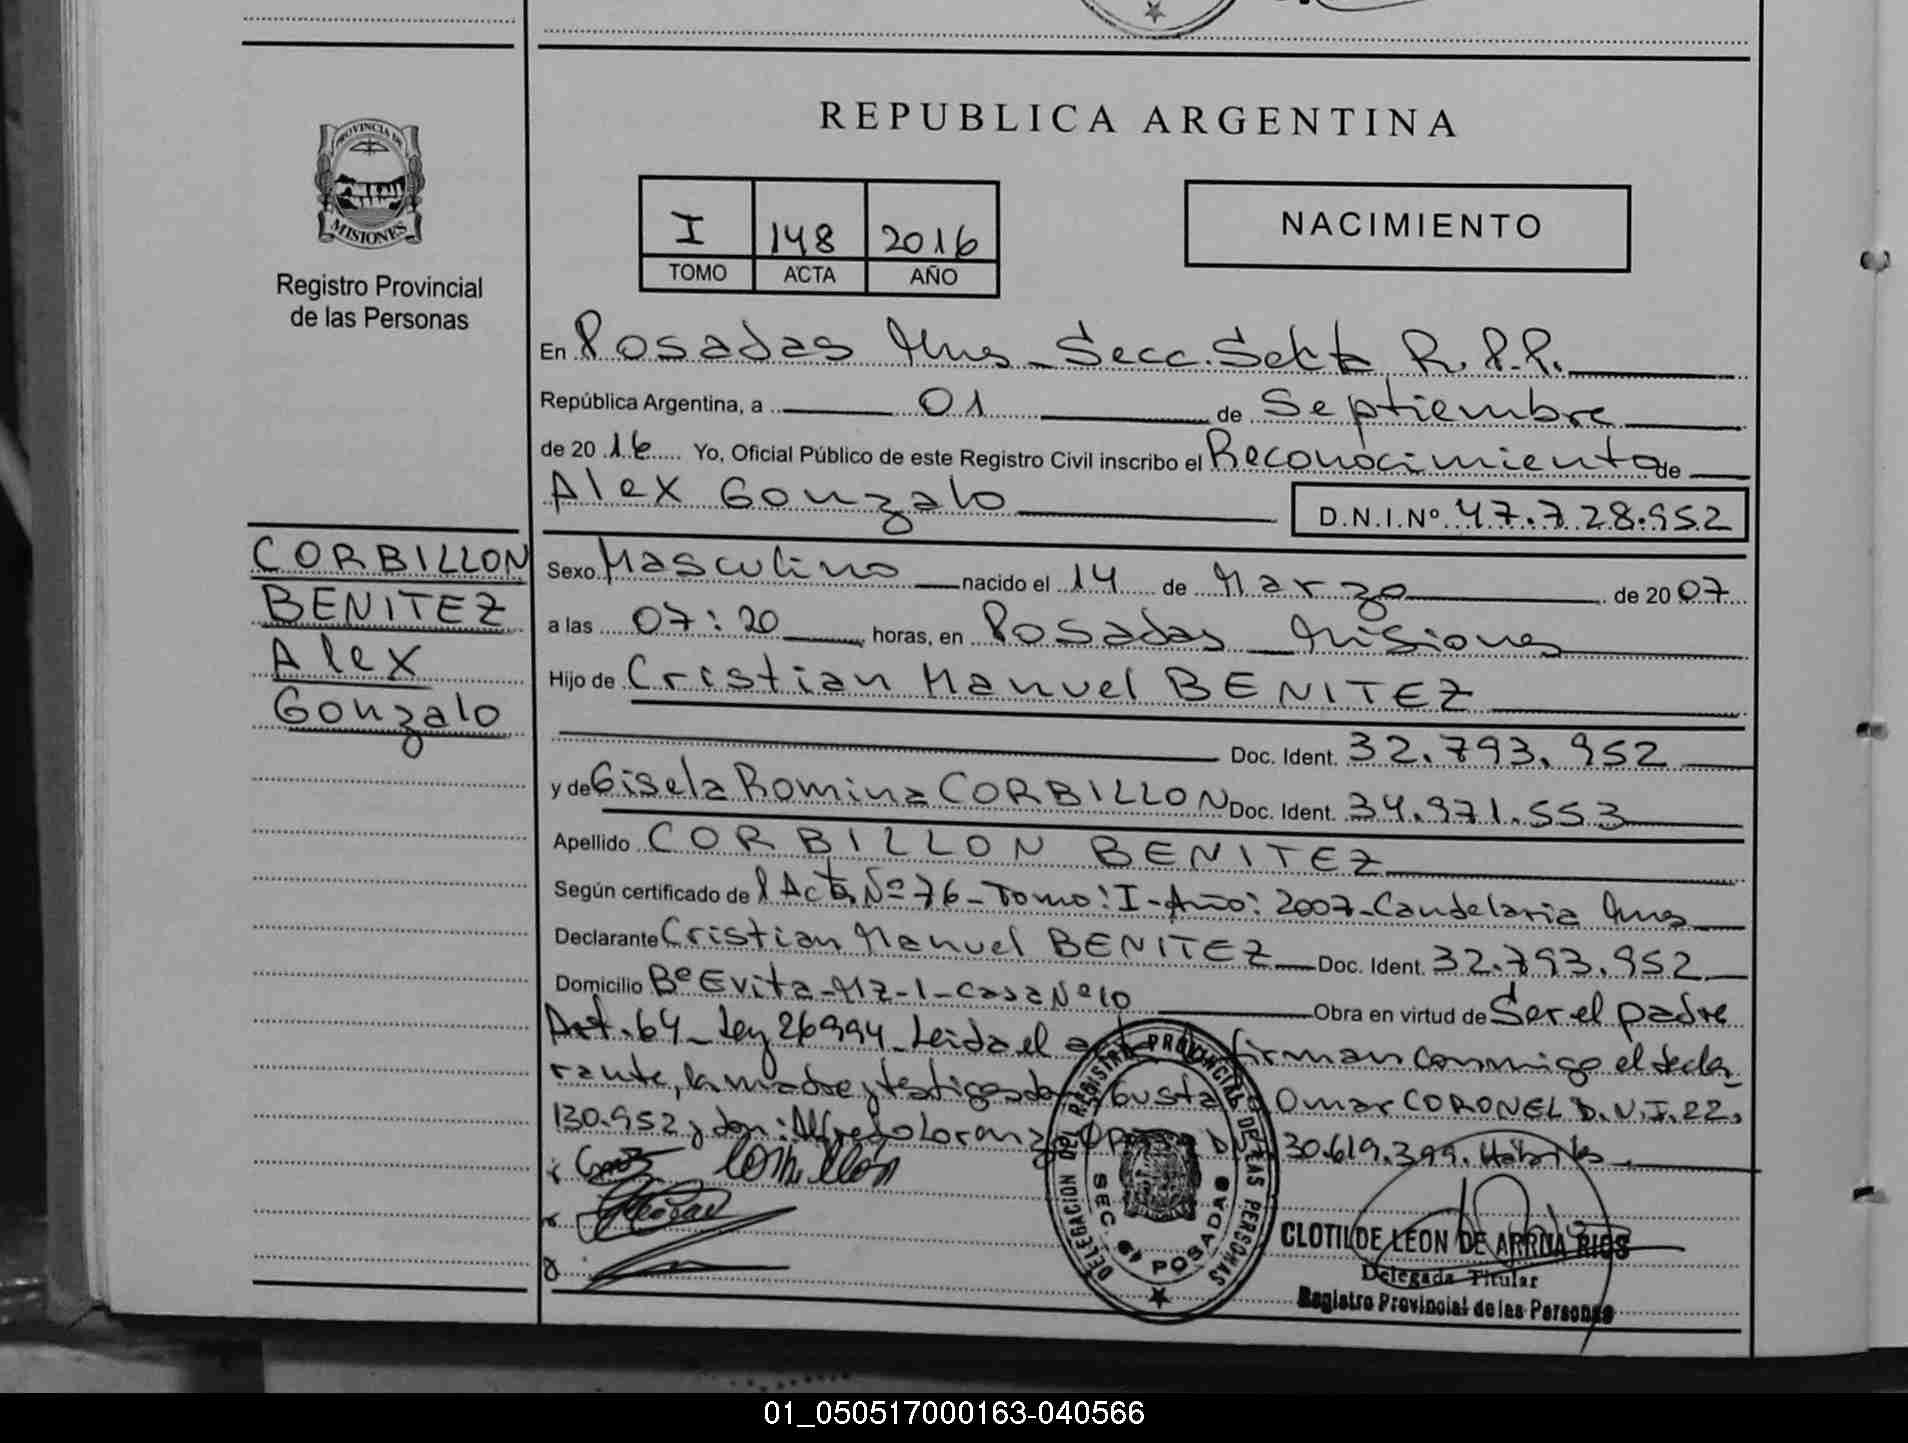 REPUBLICA ARGENTINA
PROVINCIA DE
MISIONES
Registro Provincial
de las Personas
I 148 2016
TOMO ACTA AÑO
NACIMIENTO
En Posadas Mnes _ Secc. Sexta R.P.P.
República Argentina, a 01 de Septiembre
de 2016 Yo, Oficial Público de este Registro Civil inscribo el Reconocimiento de
Alex Gonzalo D.N.I.Nº 47.728.952
CORBILLON
BENITEZ
Alex
Gonzalo
Sexo Masculino nacido el 14 de Marzo de 2007
a las 07:20 horas, en Posadas _ Misiones
Hijo de Cristian Manuel BENITEZ
Doc. Ident. 32.793.952
y de Gisela Romina CORBILLON Doc. Ident. 34.971.553
Apellido CORBILLON BENITEZ
Según certificado de Acta Nº 76 - Tomo: I - Año: 2007 - Candelaria Mnes
Declarante Cristian Manuel BENITEZ Doc. Ident. 32.793.952
Domicilio Bº Evita - Mz - 1 - Casa Nº 10 Obra en virtud de Ser el padre
Art. 64 _ Ley 26994 _ Leida el firman conmigo el decla_
rante, la madre y testigos Omar CORONEL D.N.I. 22.
130.952 y don: Alfredo 30.619.399. Hábiles
DELEGACION DEL REGISTRO PROVINCIAL DE LAS PERSONAS
SEC. 6ª POSADAS
CLOTILDE LEON DE ARRUA RIOS
Delegada Titular
Registro Provincial de las Personas
01_050517000163-040566